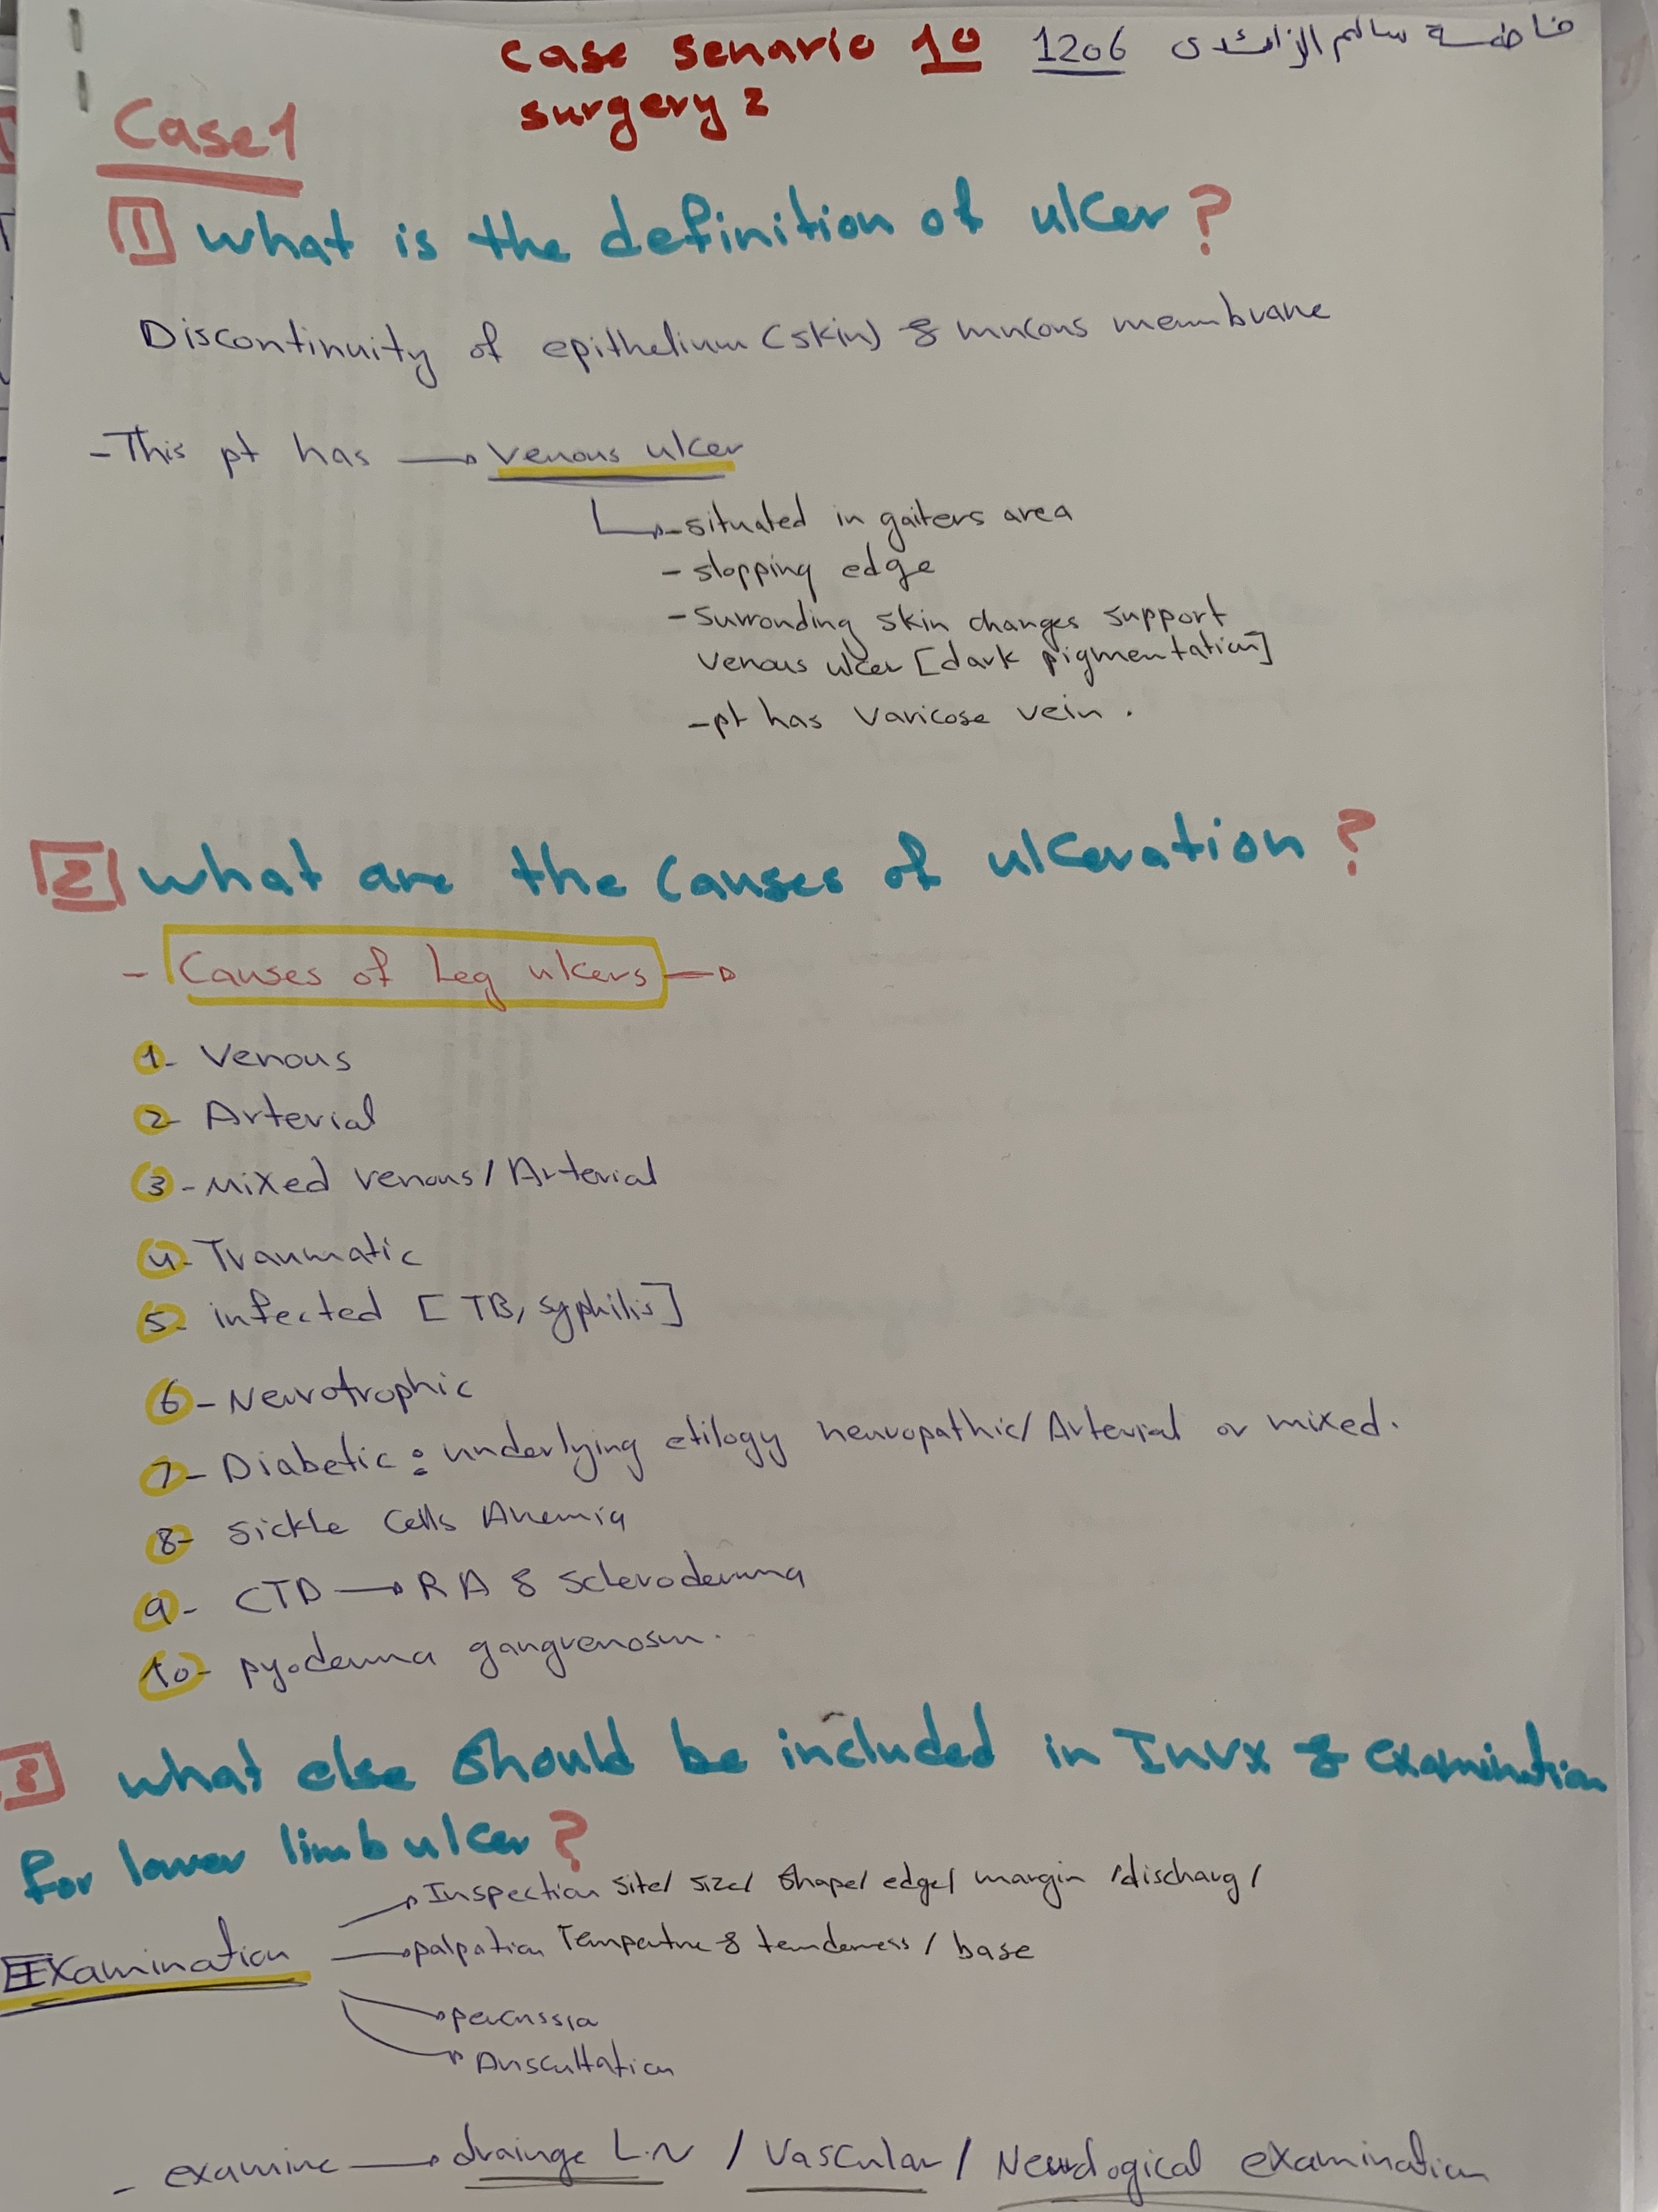 case senario 10 1206 فاطمة سالم الزائدى
surgery 2
Case1
1 what is the definition of ulcer?
Discontinuity of epithelium (skin) & mucous membrane
- This pt has → venous ulcer
- situated in gaiters area
- slopping edge
- Surronding skin changes support
venous ulcer [dark pigmentation]
- pt has varicose vein.
2 what are the causes of ulceration?
- Causes of Leg ulcers →
1- Venous
2- Arterial
3- mixed venous/Arterial
4- Traumatic
5- infected [TB, syphilis]
6- Neurotrophic
7- Diabetic: underlying etilogy neuropathic/Arterial or mixed.
8- Sickle Cells Anemia
9- CTD → RA & Scleroderma
10- pyoderma gangrenosm.
3 what else should be included in Invx & examination
for lower limb ulcer?
Inspection site/ size/ shape/ edge/ margin /discharg/
Examination → palpation Tempertue & tenderness / base
percussia
Auscultation
- examine → drainge L.N / Vascular / Neurological examination